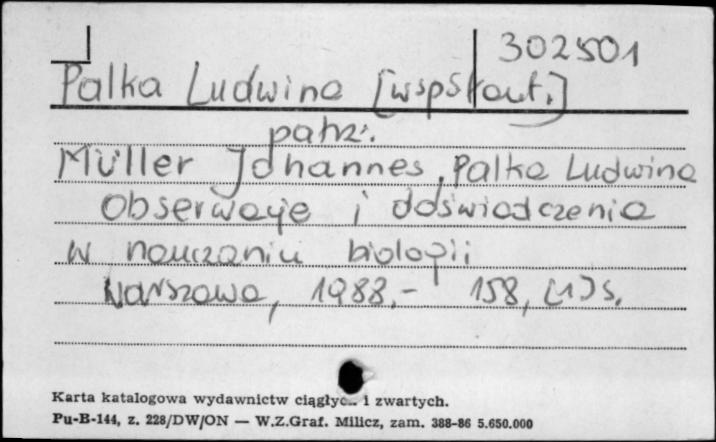 302501
Palka Ludwina [współaut.]
patrz:
Müller Johannes, Palka Ludwina
Obserwacje i doświadczenia
w nauczaniu biologii
Warszawa, 1988.- 158, [1] s.
Karta katalogowa wydawnictw ciągłyc i zwartych.
Pu-B-144, z. 228/DW/ON — W.Z.Graf. Milicz, zam. 388-86 5.650.000